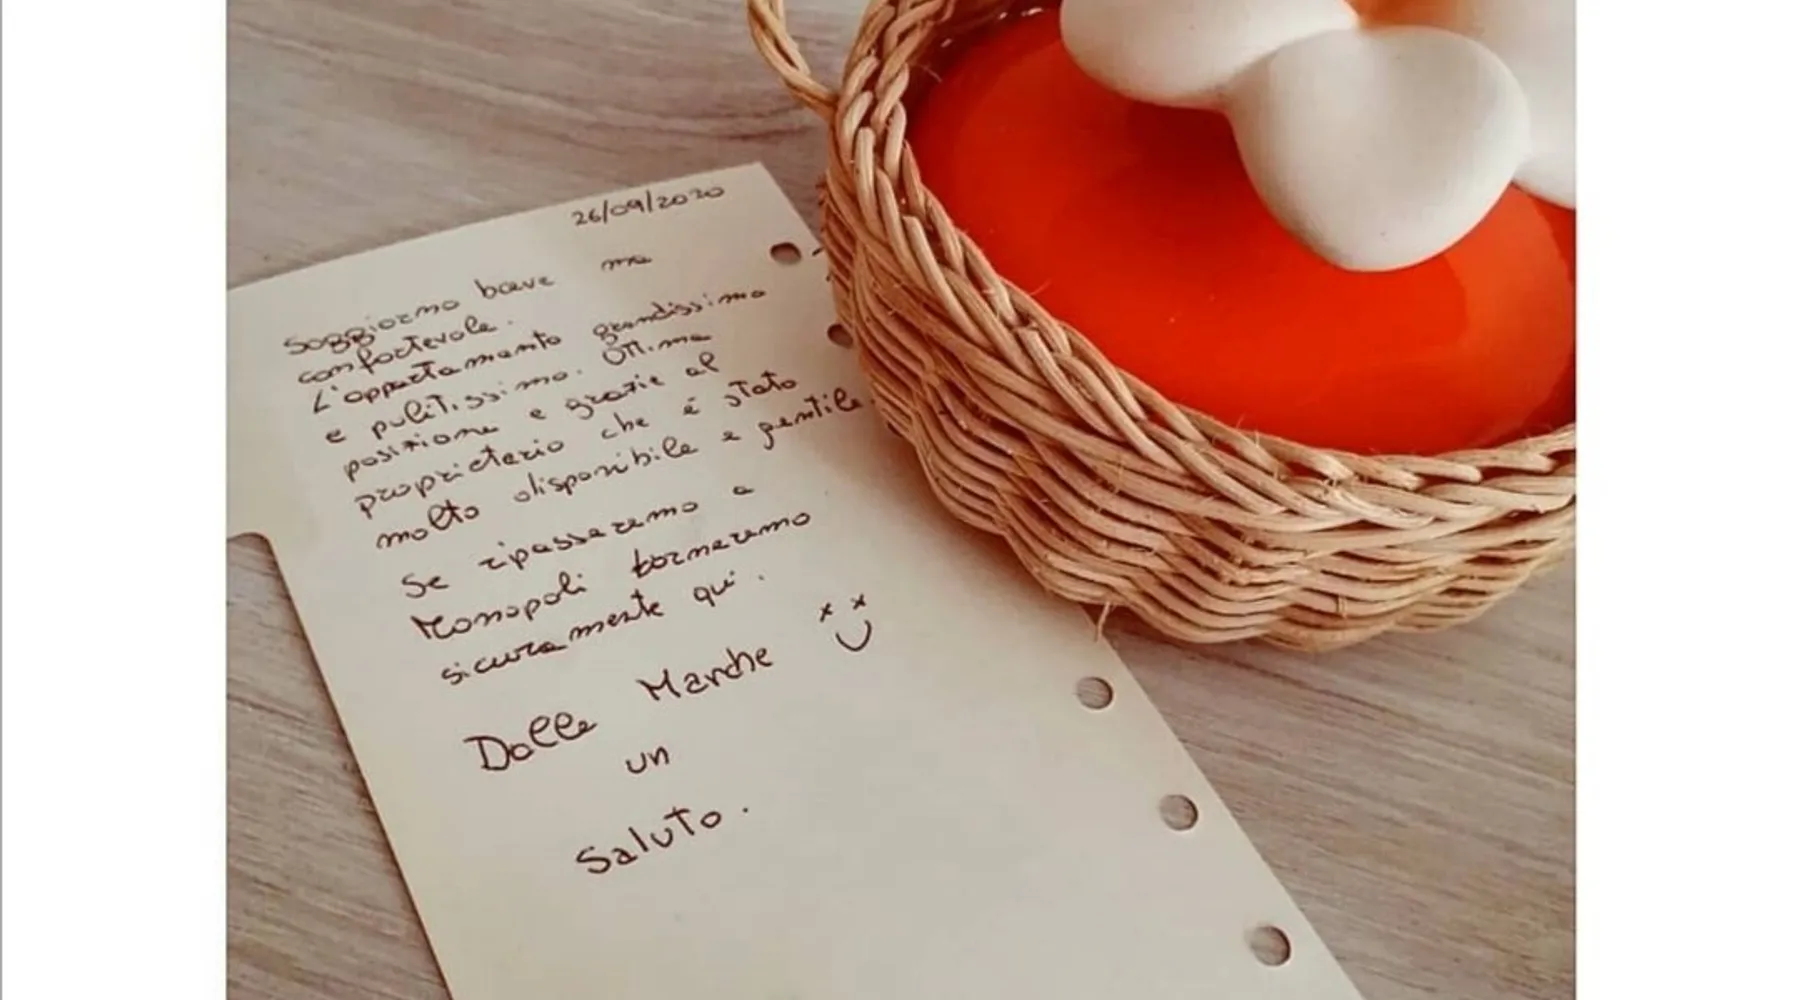 26/09/2020
Soggiorno breve ma
confortevole.
L'appartamento grandissimo
e pulitissimo. Ottima
posizione e grazie al
proprietario che è stato
molto disponibile e gentile.
Se ripasseremo a
Monopoli torneremo
sicuramente qui.
Dalle Marche
un
Saluto.